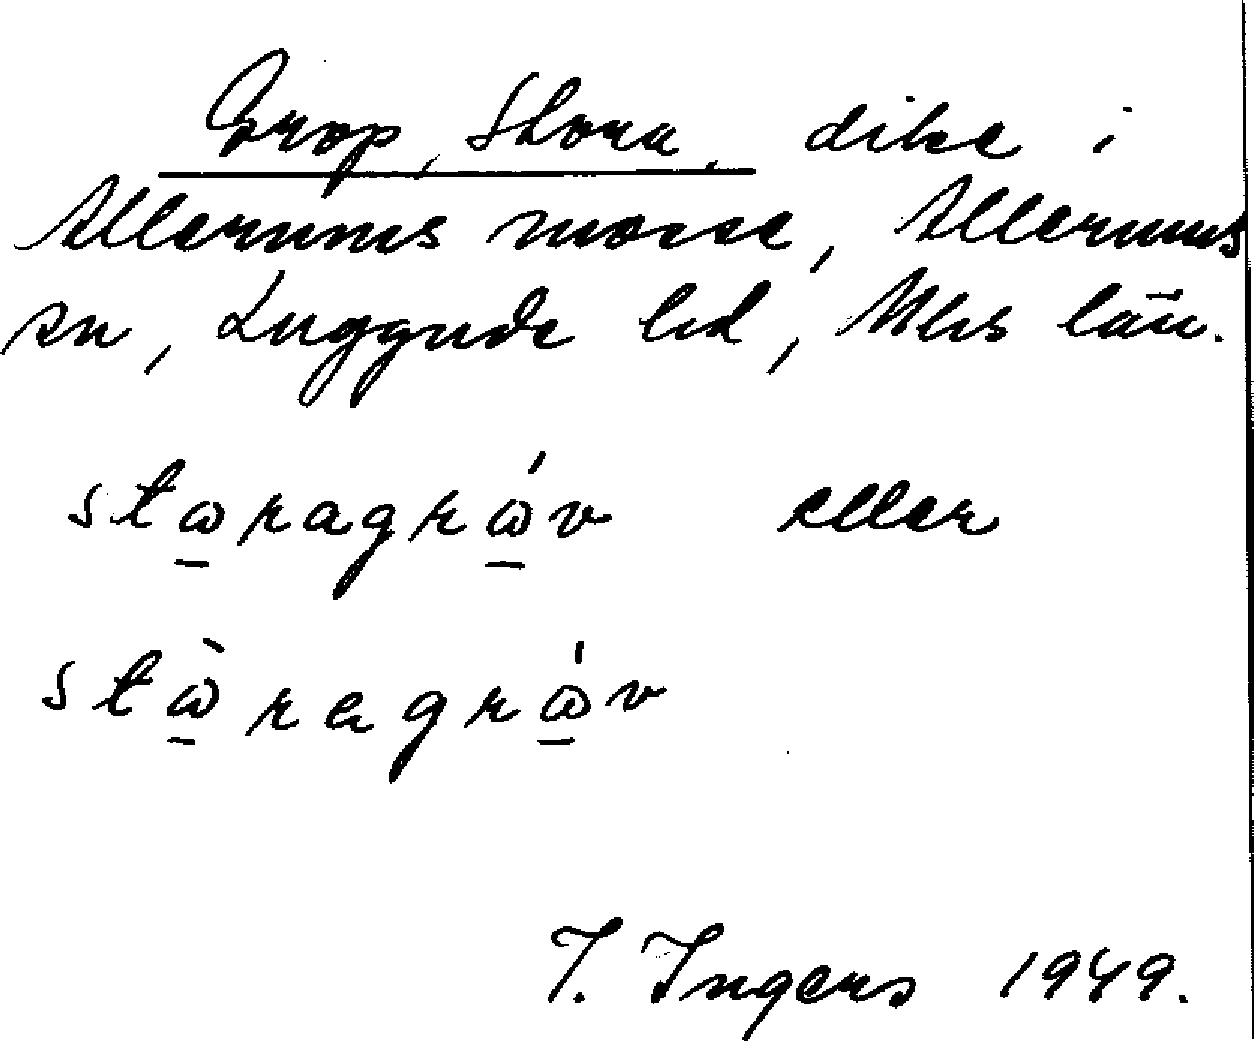 Grop, Stora, dike i
Allerums mosse, Allerums
sn, Luggude hd, Mlhs län.
stω̲ragrώ̲v eller
stὼ̲ragrώ̲v
I. Ingers 1949.